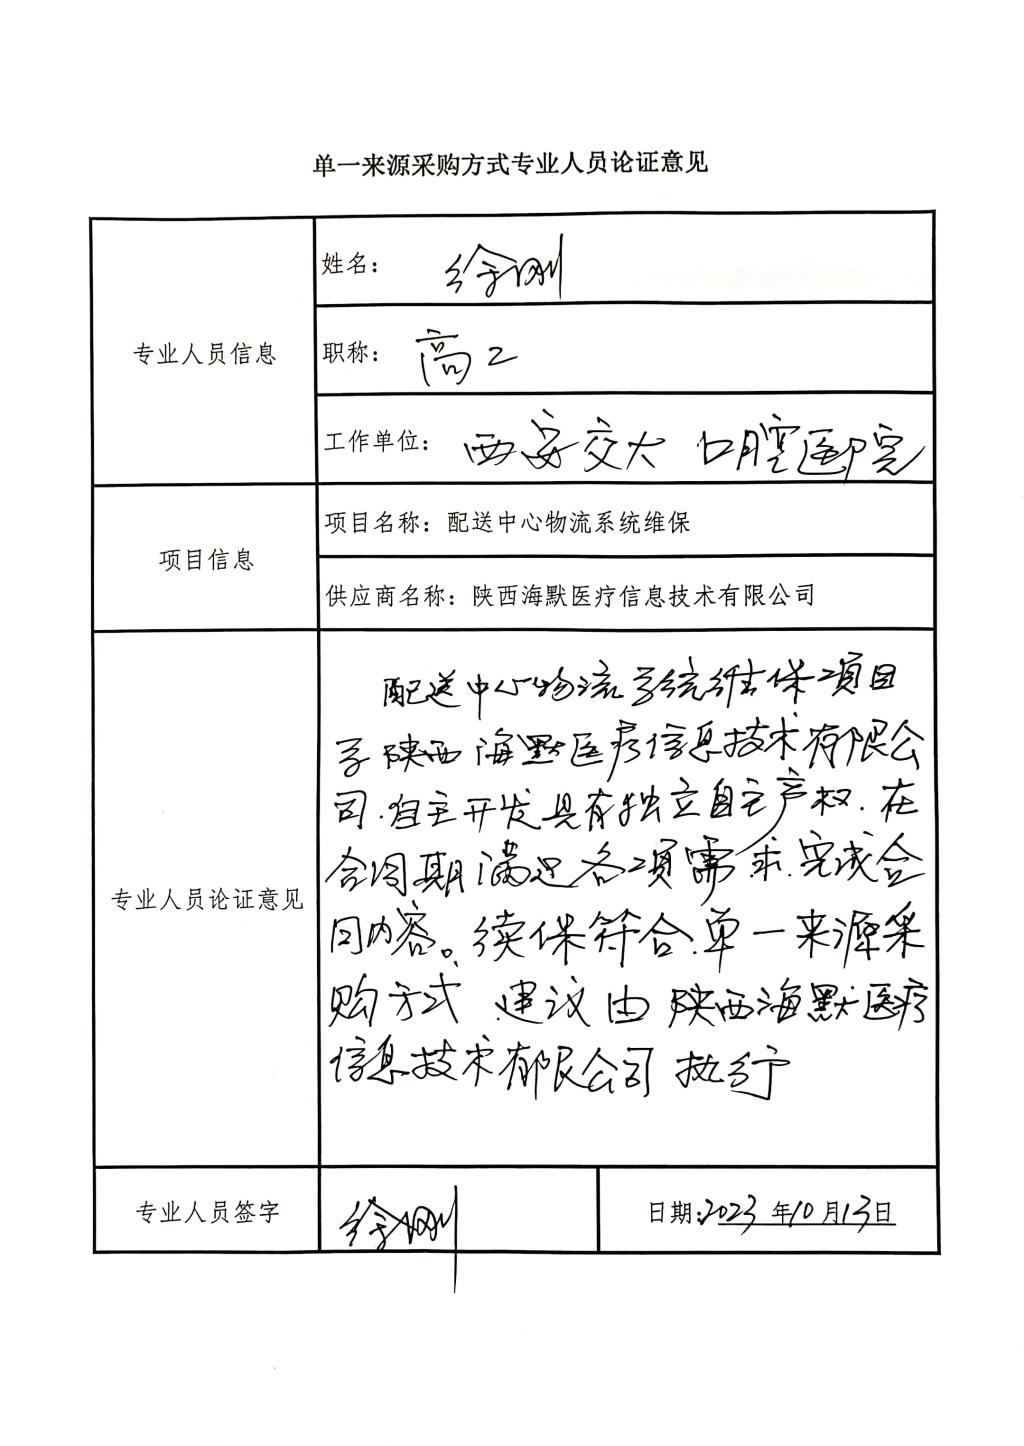 单一来源采购方式专业人员论证意见
专业人员信息
姓名：徐刚
职称：高工
工作单位：西安交大 口腔医院
项目信息
项目名称：配送中心物流系统维保
供应商名称：陕西海默医疗信息技术有限公司
专业人员论证意见
配送中心物流系统维保项目
予陕西海默医疗信息技术有限公
司.自主开发具有独立自主产权.在
合同期满足各项需求.完成合
同内容。续保符合.单一来源采
购方式 建议由 陕西海默医疗
信息技术有限公司 执行
专业人员签字
徐刚
日期:2023年10月13日